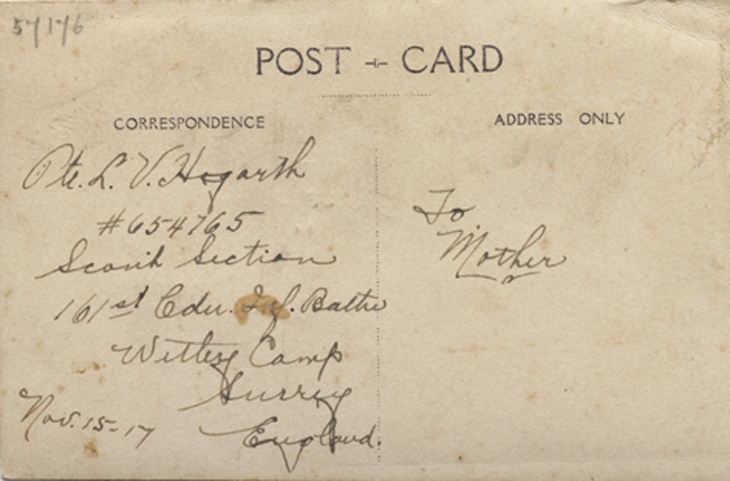 57176
POST CARD
CORRESPONDENCE
ADDRESS ONLY
Pte. L. V. Hogarth
#654765
Scout Section
161st Cdn. Inf. Battn
Witley Camp
Surrey
England.
Nov. 15-17
To
Mother